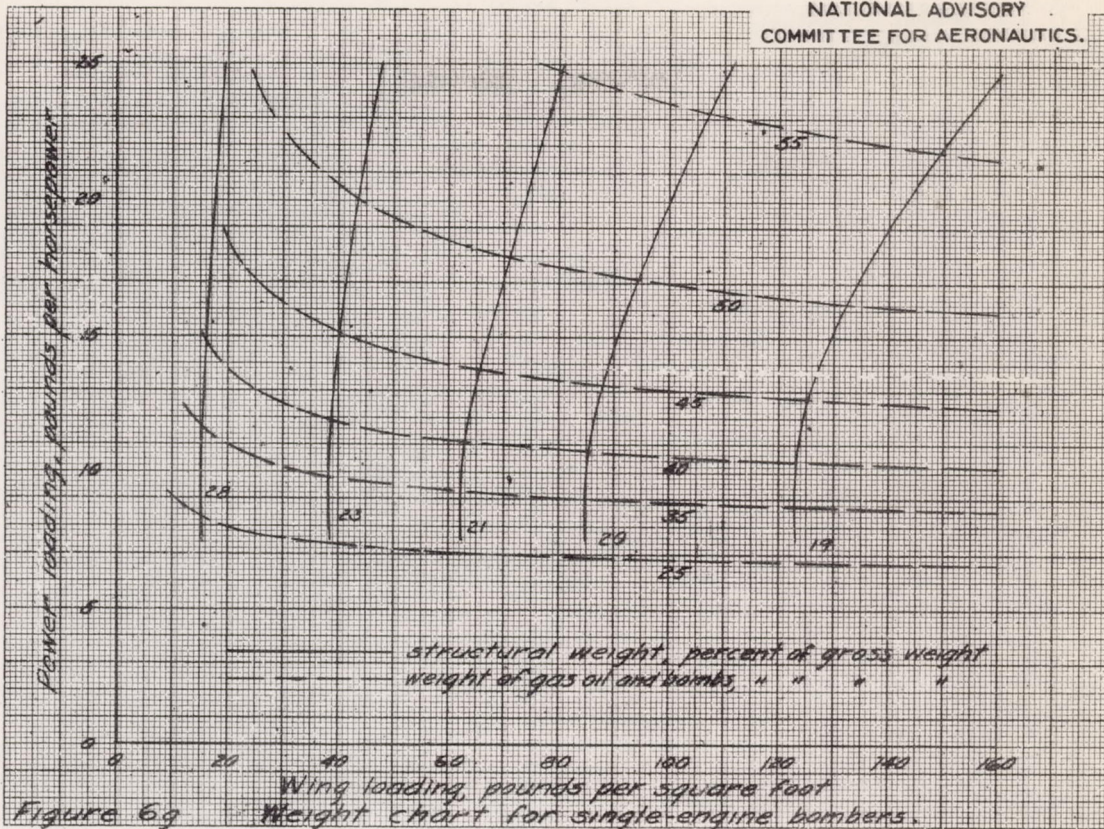 NATIONAL ADVISORY
COMMITTEE FOR AERONAUTICS.
25
20
15
10
5
0
Power loading, pounds per horsepower
55
50
45
40
35
25
28
23
21
20
19
structural weight, percent of gross weight
weight of gas oil and bombs, " " " "
0 20 40 60 80 100 120 140 160
Wing loading, pounds per square foot
Figure 6g Weight chart for single-engine bombers.